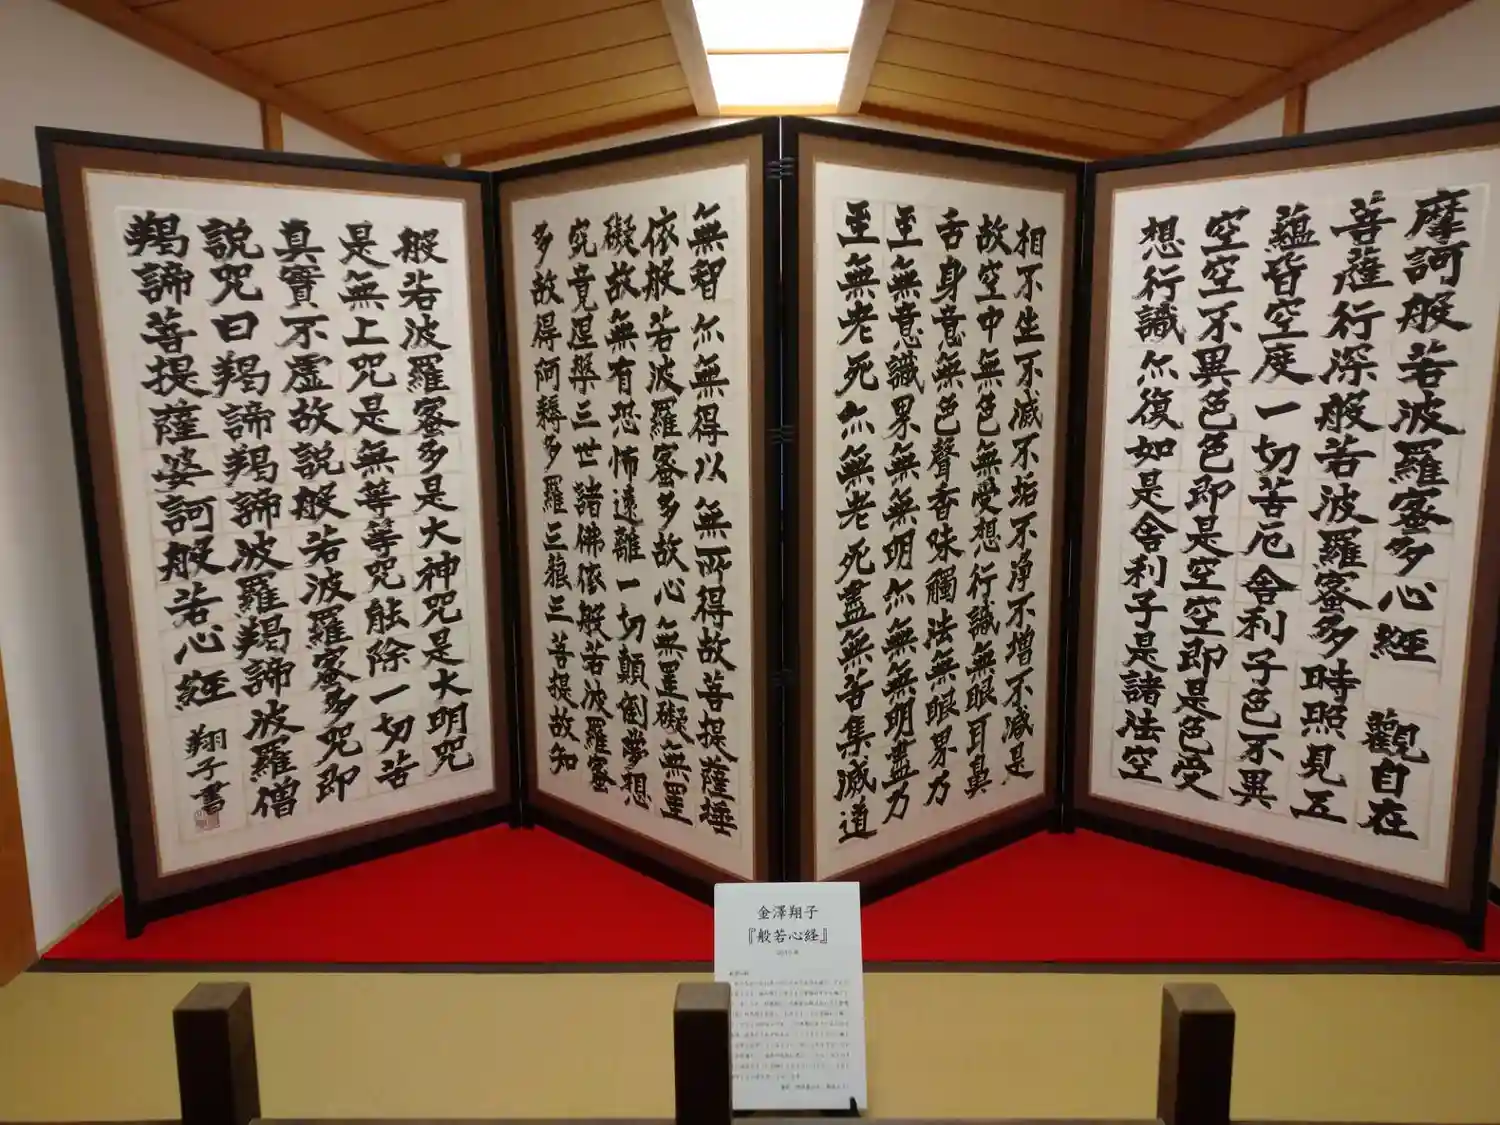 摩訶般若波羅蜜多心經 觀自在
菩薩行深般若波羅蜜多時照見五
蘊皆空度一切苦厄舍利子色不異
空空不異色色即是空空即是色受
想行識亦復如是舍利子是諸法空
相不生不滅不垢不淨不增不減是
故空中無色無受想行識無眼耳鼻
舌身意無色聲香味觸法無眼界乃
至無意識界無無明亦無無明盡乃
至無老死亦無老死盡無苦集滅道
無智亦無得以無所得故菩提薩埵
依般若波羅蜜多故心無罣礙無罣
礙故無有恐怖遠離一切顛倒夢想
究竟涅槃三世諸佛依般若波羅蜜
多故得阿耨多羅三藐三菩提故知
般若波羅蜜多是大神咒是大明咒
是無上咒是無等等咒能除一切苦
真實不虛故說般若波羅蜜多咒即
說咒曰羯諦羯諦波羅羯諦波羅僧
羯諦菩提薩婆訶般若心經 翔子書
金澤翔子
『般若心経』